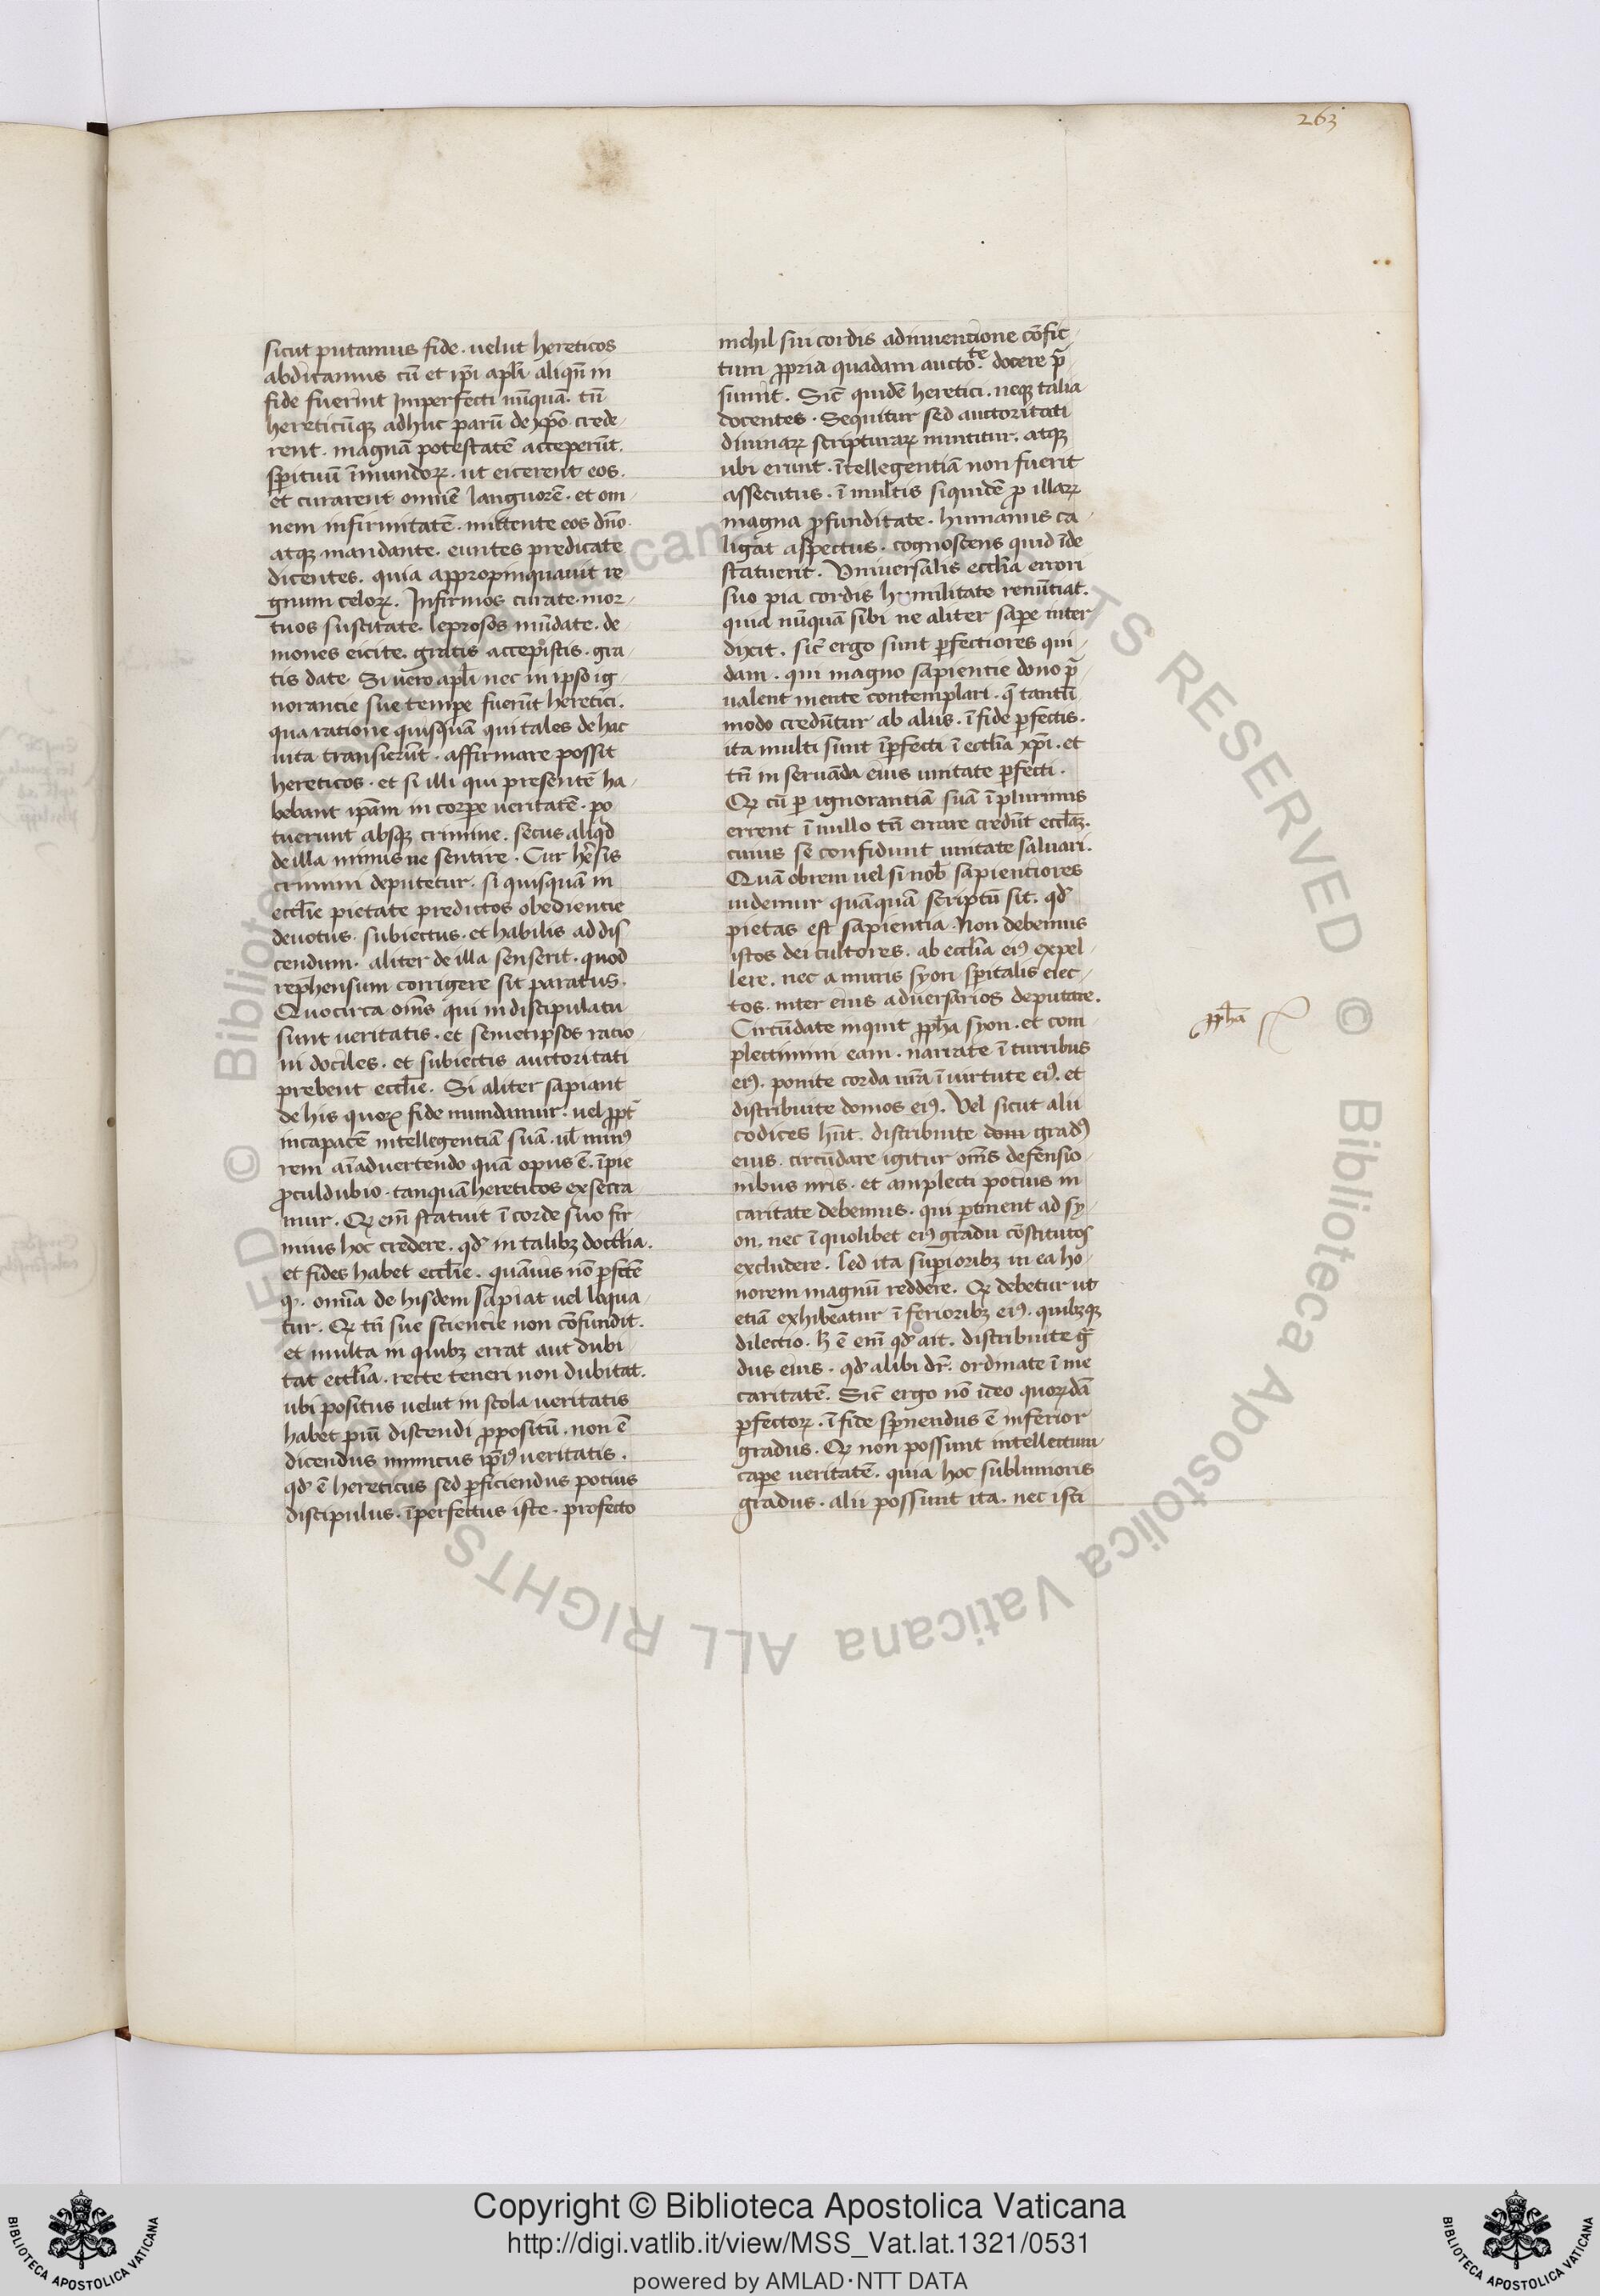 263
sicut putamus fide. uelut hereticos
abdicamus cū et ip̄i apl̄i aliqn̄ in
fide fuerint Imperfecti nūquā. tn̄
hereticūqꝫ adhuc parū de xp̄o crede-
rent. magnā potestatē acceperūt.
spirituū īmundoꝝ. ut eicerent eos.
et curarent omnē languorē. et om-
nem infirmitatē. mittente eos dn̄o.
atqꝫ mandante. euntes predicate
dicentes. quia appropinquauit re
gnum celoꝝ. Infirmos curate. mor-
tuos suscitate. leprosos mūdate. de-
mones eicite. gratis accepistis. gra-
tis date. Si uero apl̄i nec in ipso ig-
norancie sue tempe fuerūt heretici.
qua ratione quisquā qui tales de hac
uita transierūt. affirmare possit
hereticos. et si illi qui presentē ha-
bebant ip̄am in corpe ueritatē. po
tuerunt absqꝫ crimine. secus aliqd
de illa minus ue sentire. Cur hresis
crimini deputetur. si quisquā in
eccl̄ie pietate predictos obediencie
deuotus. subiectus. et habilis ad dis
cendum. aliter de illa senserit. quod
reprehensum corrigere sit paratus.
Quocirca om̄s qui in discipulatu
sunt ueritatis. et semetipsos racio-
ni dociles. et subiectis auctoritati
prebent eccl̄ie. Si aliter sapiant
de his quoꝝ fide mundamur. uel ꝓpt̄
incapacē intellegentiā suā. ul̄ minꝰ
rem aīaduertendo quā opus ē. īpie
ꝓculdubio. tanquā hereticos exsecra-
mur. Qꝫ em̄ statuit ī corde suo fir-
mius hoc credere. qd̓ in talibꝫ doct̄na.
et fides habet eccl̄ie. quāuis nō ꝑfcte
qꝫ. omīa de hisdem sapiat uel loqua-
tur. Qꝫ tn̄ sue sciencie non cōfundit.
et multa in quibꝫ errat aut dubi
tat eccl̄ia. recte teneri non dubitat.
ubi positus uelut in scola ueritatis
habet piū discendi ꝓpositū. non ē
dicendus inimicus ip̄iꝰ ueritatis.
qd̓ ē hereticus sed ꝑficiendus pocius
discipulus. īperfectus iste. profecto
nichil sui cordis adinuencione cōfic-
tum ꝓpria quadam aucto.te docere p̄
sumit. Sic̄ quidē heretici. neqꝫ talia
docentes. Sequitur sed auctoritati
diuinaꝝ scripturaꝝ innititur. atqꝫ
ubi erunt. ītellegentiā non fuerit
assecutus. ī multis siquidē ꝑ illaꝝ
magna ꝓfunditate. humanus ca-
ligat aspectus. cognoscens quid īde
statuerit. Uniuersalis eccl̄ia errori
suo pia cordis humilitate renūtiat.
quia nūquā sibi ne aliter sape inter
dixit. sic̄ ergo sunt ꝑfectiores qui-
dam. qui magno sapiencie dono p̄-
ualent mente contemplari. q̄ tantū
modo credūtur ab aliis. ī fide ꝑfectis.
ita multi sunt īꝑfecti ī eccl̄ia xp̄i. et
tn̄ in seruāda eius unitate ꝑfecti.
Qꝫ cū ꝑ ignorantiā suā ī plurimis
errent ī nullo tn̄ errare credūt eccl̄iaꝫ.
cuius se confidunt unitate saluari.
Quā obrem uel si nob̄ sapientiores
uidemur quāquā scriptū sit. qd̓
pietas est sapientia. Non debemus
istos dei cultores. ab eccl̄ia eiꝰ expel-
lere. nec a muris syon spiritalis eiec-
tos. inter eius aduersarios deputare.
Circūdate inquit ꝓph̄a syon. et com
plectimini eam. narrate ī turribus
eiꝰ. ponite corda ur̄a ī uirtute eiꝰ. et
distribuite domos eiꝰ. Uel sicut alii
codices hn̄t. distribuite dom gradꝰ
eius. circūdare igitur om̄s defensio-
nibus nr̄is. et amplecti pocius in
caritate debemus. qui ꝑtinent ad sy-
on. nec ī quolibet eiꝰ gradu cōstitutos
excludere. sed ita supioribꝫ in ea ho-
norem magnū reddere. Qꝫ debetur ut
etiā exhibeatur ī ferioribꝫ eiꝰ. quibꝫqꝫ
dilectio. h̄ ē em̄ qd̓ ait. distribuite ḡ
dus eius. qd̓ alibi dr̄. ordinate ī me
caritatē. Sic̄ ergo nō ideo quorūdā
ꝑfectoꝝ. ī fide spnendus ē inferior
gradus. Qꝫ non possunt intellectum
cape ueritatē. quia hoc sublimioris
gradus. alii possunt ita. nec isti
ꝓph̄a
Copyright © Biblioteca Apostolica Vaticana
http://digi.vatlib.it/view/MSS_Vat.lat.1321/0531
powered by AMLAD·NTT DATA
BIBLIOTECA APOSTOLICA VATICANA
BIBLIOTECA APOSTOLICA VATICANA
© Biblioteca Apostolica Vaticana ALL RIGHTS RESERVED © Biblioteca Apostolica Vaticana ALL RIGHTS RESERVED